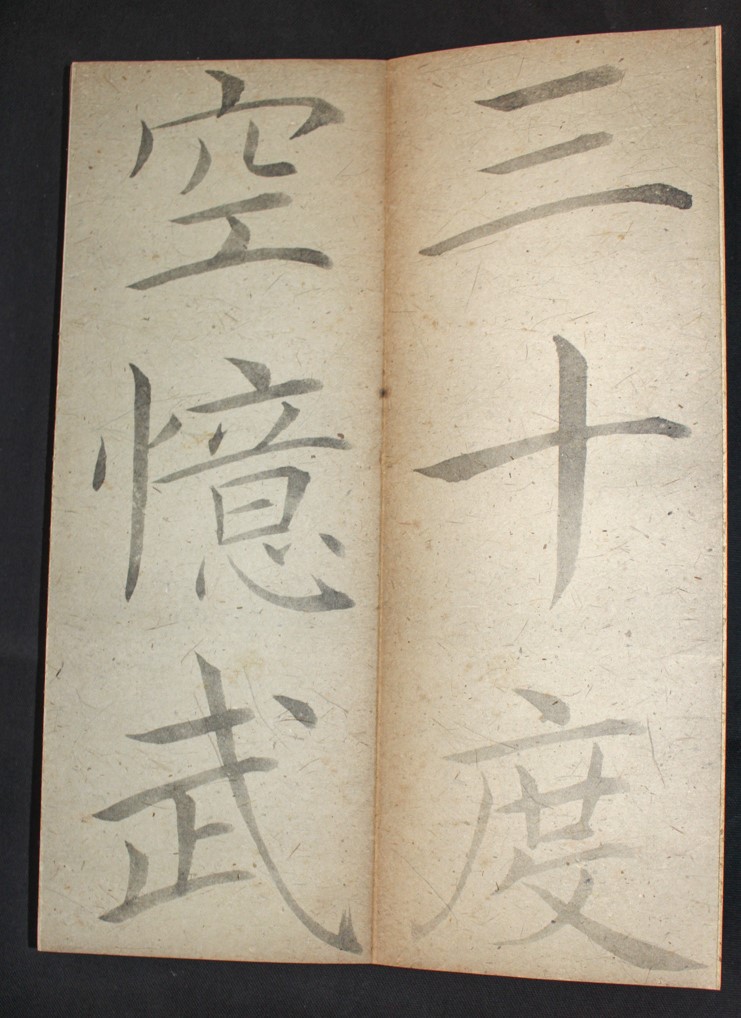 三十度
空憶武